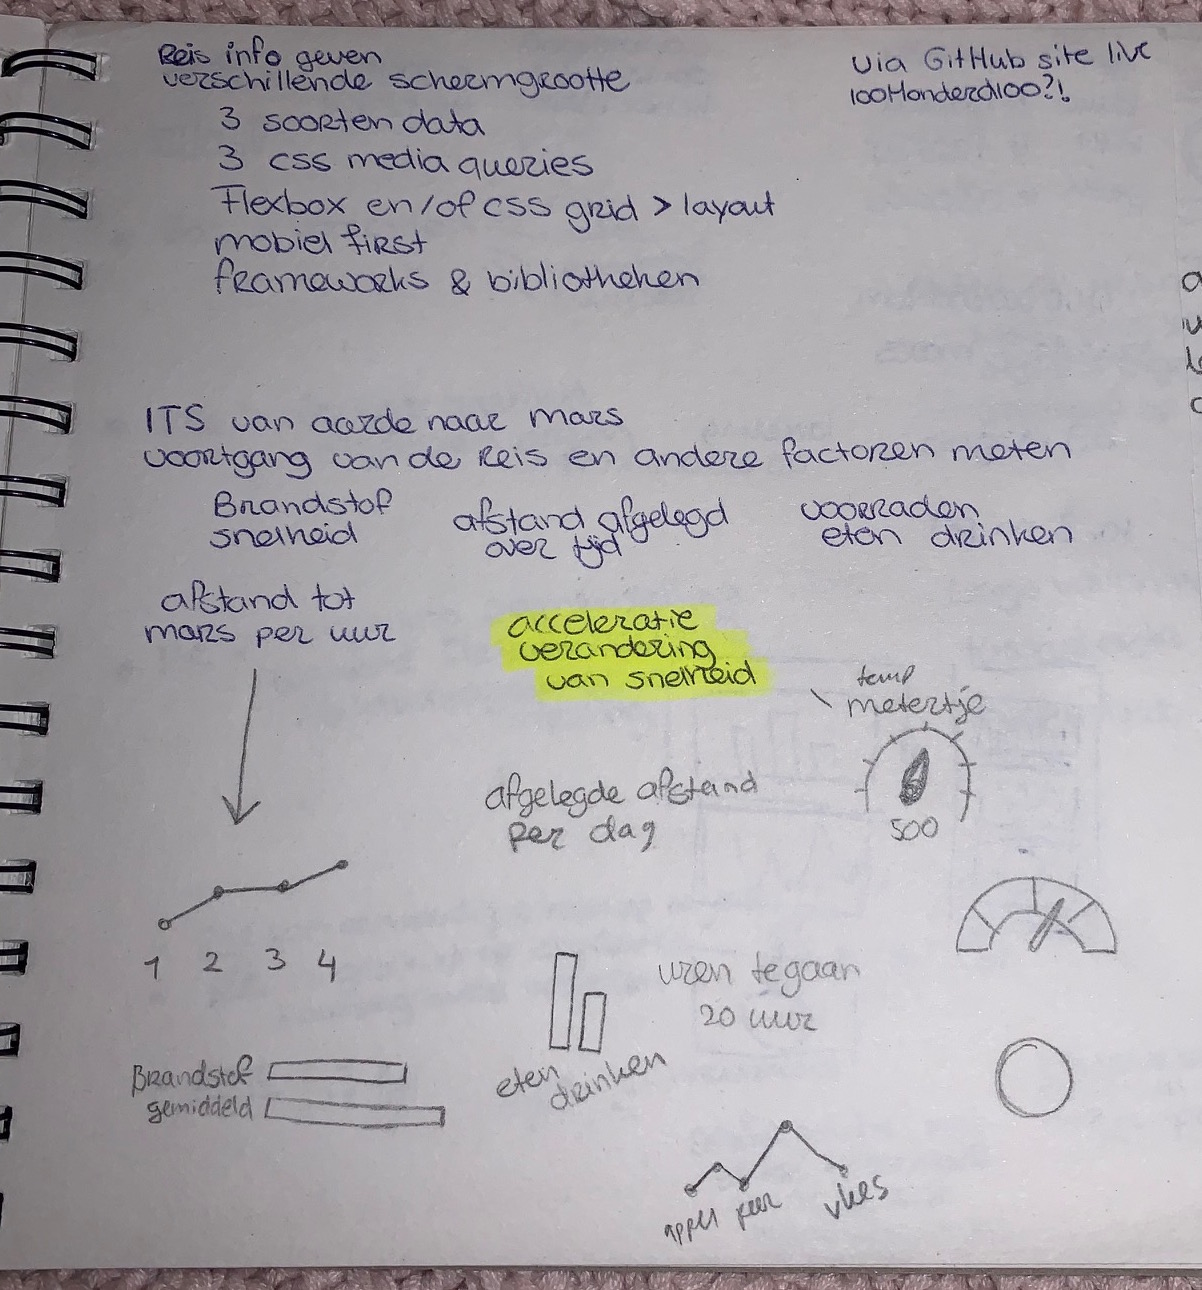 Reis info geven
verschillende schermgrootte
3 soorten data
3 css media queries
Flexbox en/of css grid > layout
mobiel first
frameworks & bibliotheken
via GitHub site live
100Honderd100?!
ITS van aarde naar mars
voortgang van de Reis en andere factoren meten
Brandstof
snelheid
afstand afgelegd
over tijd
voorraden
eten drinken
afstand tot
mars per uur
acceleratie
verandering
van snelheid
temp
metertje
500
afgelegde afstand
per dag
1 2 3 4
uren te gaan
20 uur
Brandstof
gemiddeld
eten
drinken
appel peer vlees